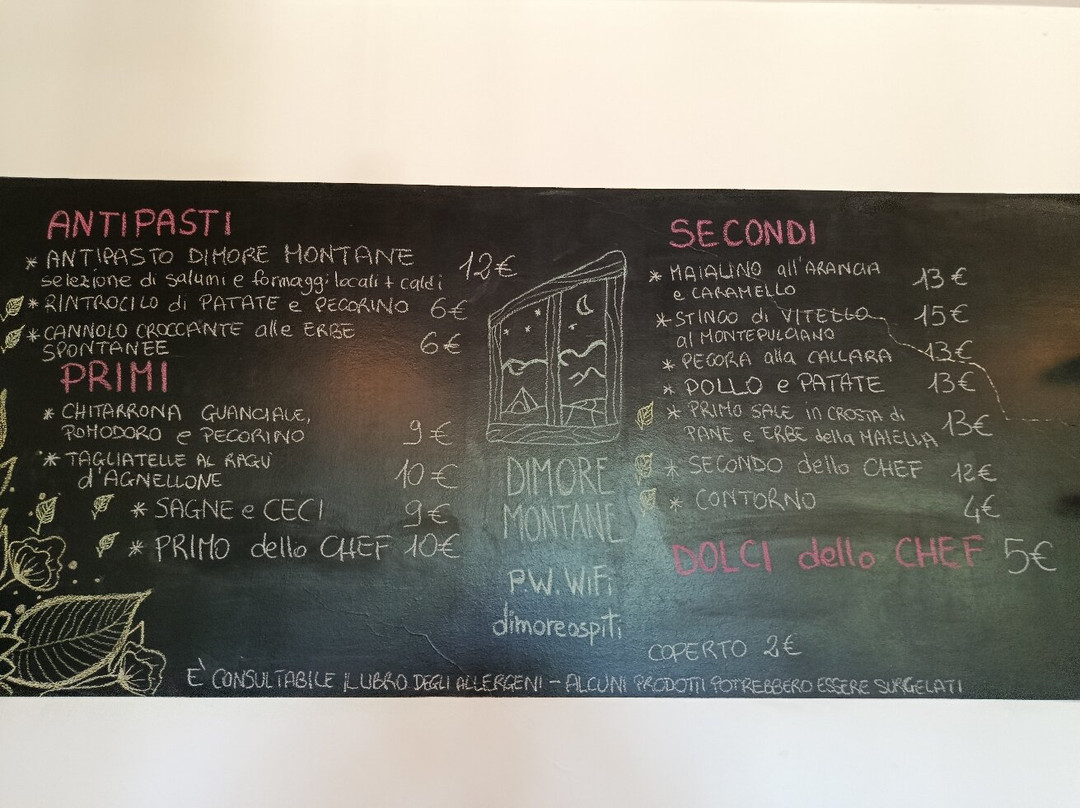 ANTIPASTI
* ANTIPASTO DIMORE MONTANE 12€
selezione di salumi e formaggi locali + caldi
* RINTROCILO di PATATE e PECORINO 6€
* CANNOLO CROCCANTE alle ERBE 6€
SPONTANEE
PRIMI
* CHITARRONA GUANCIALE,
POMODORO e PECORINO 9€
* TAGLIATELLE AL RAGÙ
d'AGNELLONE 10€
* SAGNE e CECI 9€
* PRIMO dello CHEF 10€
DIMORE
MONTANE
P.W. WiFi
dimoreospiti
SECONDI
* MAIALINO all'ARANCIA 13€
e CARAMELLO
* STINCO di VITELLO 15€
al MONTEPULCIANO
* PECORA alla CALLARA 13€
* POLLO e PATATE 13€
* PRIMO SALE in CROSTA di
PANE e ERBE della MAIELLA 13€
* SECONDO dello CHEF 12€
* CONTORNO 4€
DOLCI dello CHEF 5€
COPERTO 2€
È CONSULTABILE IL LIBRO DEGLI ALLERGENI - ALCUNI PRODOTTI POTREBBERO ESSERE SURGELATI